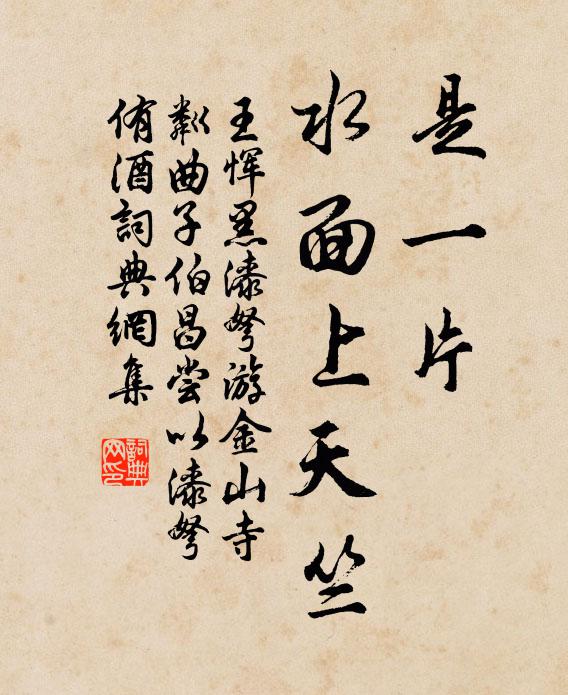 是一片
水面上天竺
王惲黑漆弩游金山寺
鄰曲子伯昌嘗以漆弩
侑酒詞典網集
詞典
网印